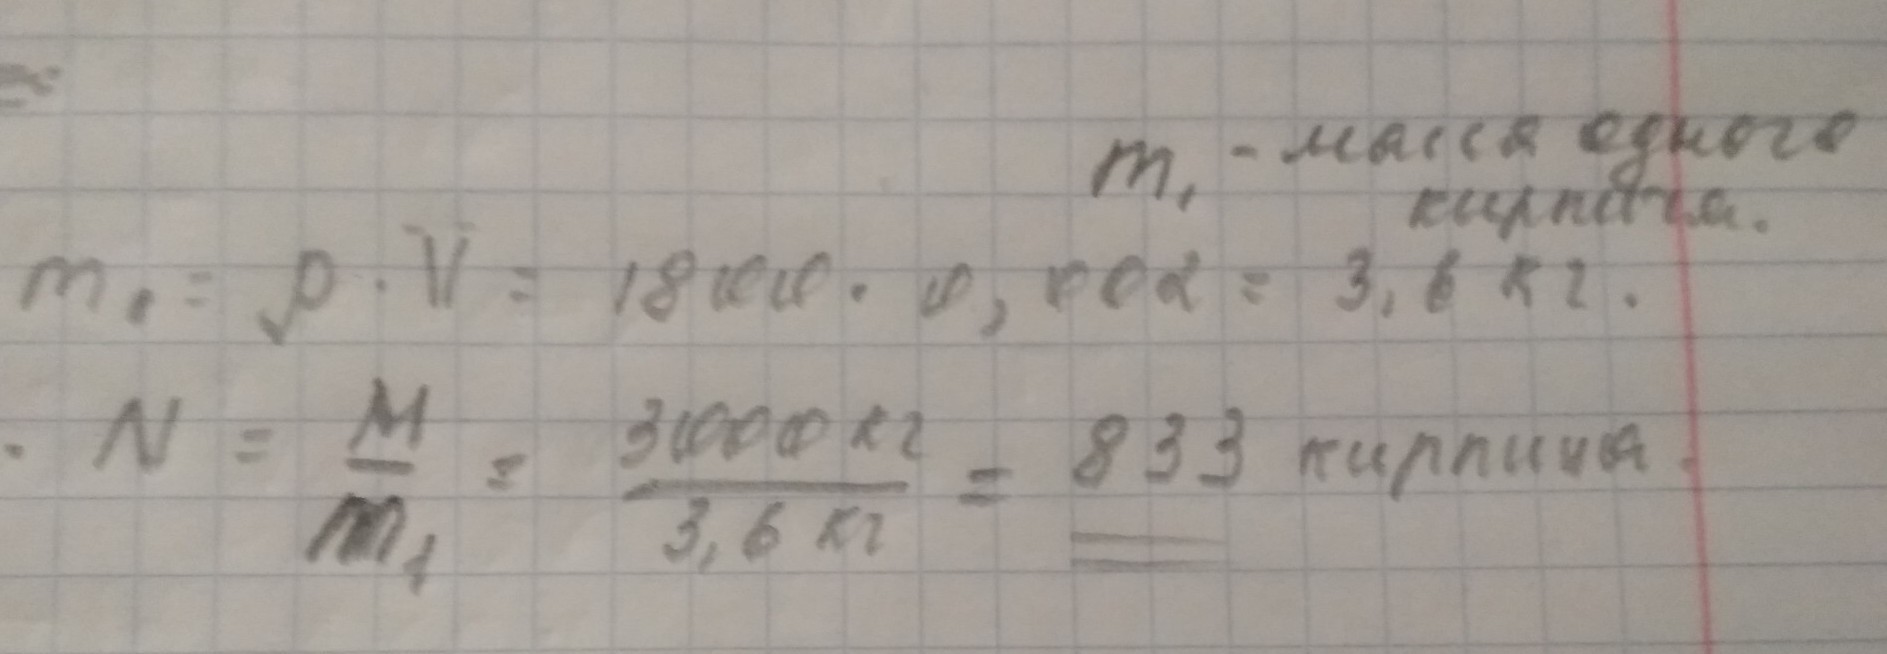 m₁ - масса одного
кирпича.
m₁ = ρ · V = 1800 · 0,002 = 3,6 кг.
N = M/m₁ = 3000 кг/3,6 кг = 833 кирпича.